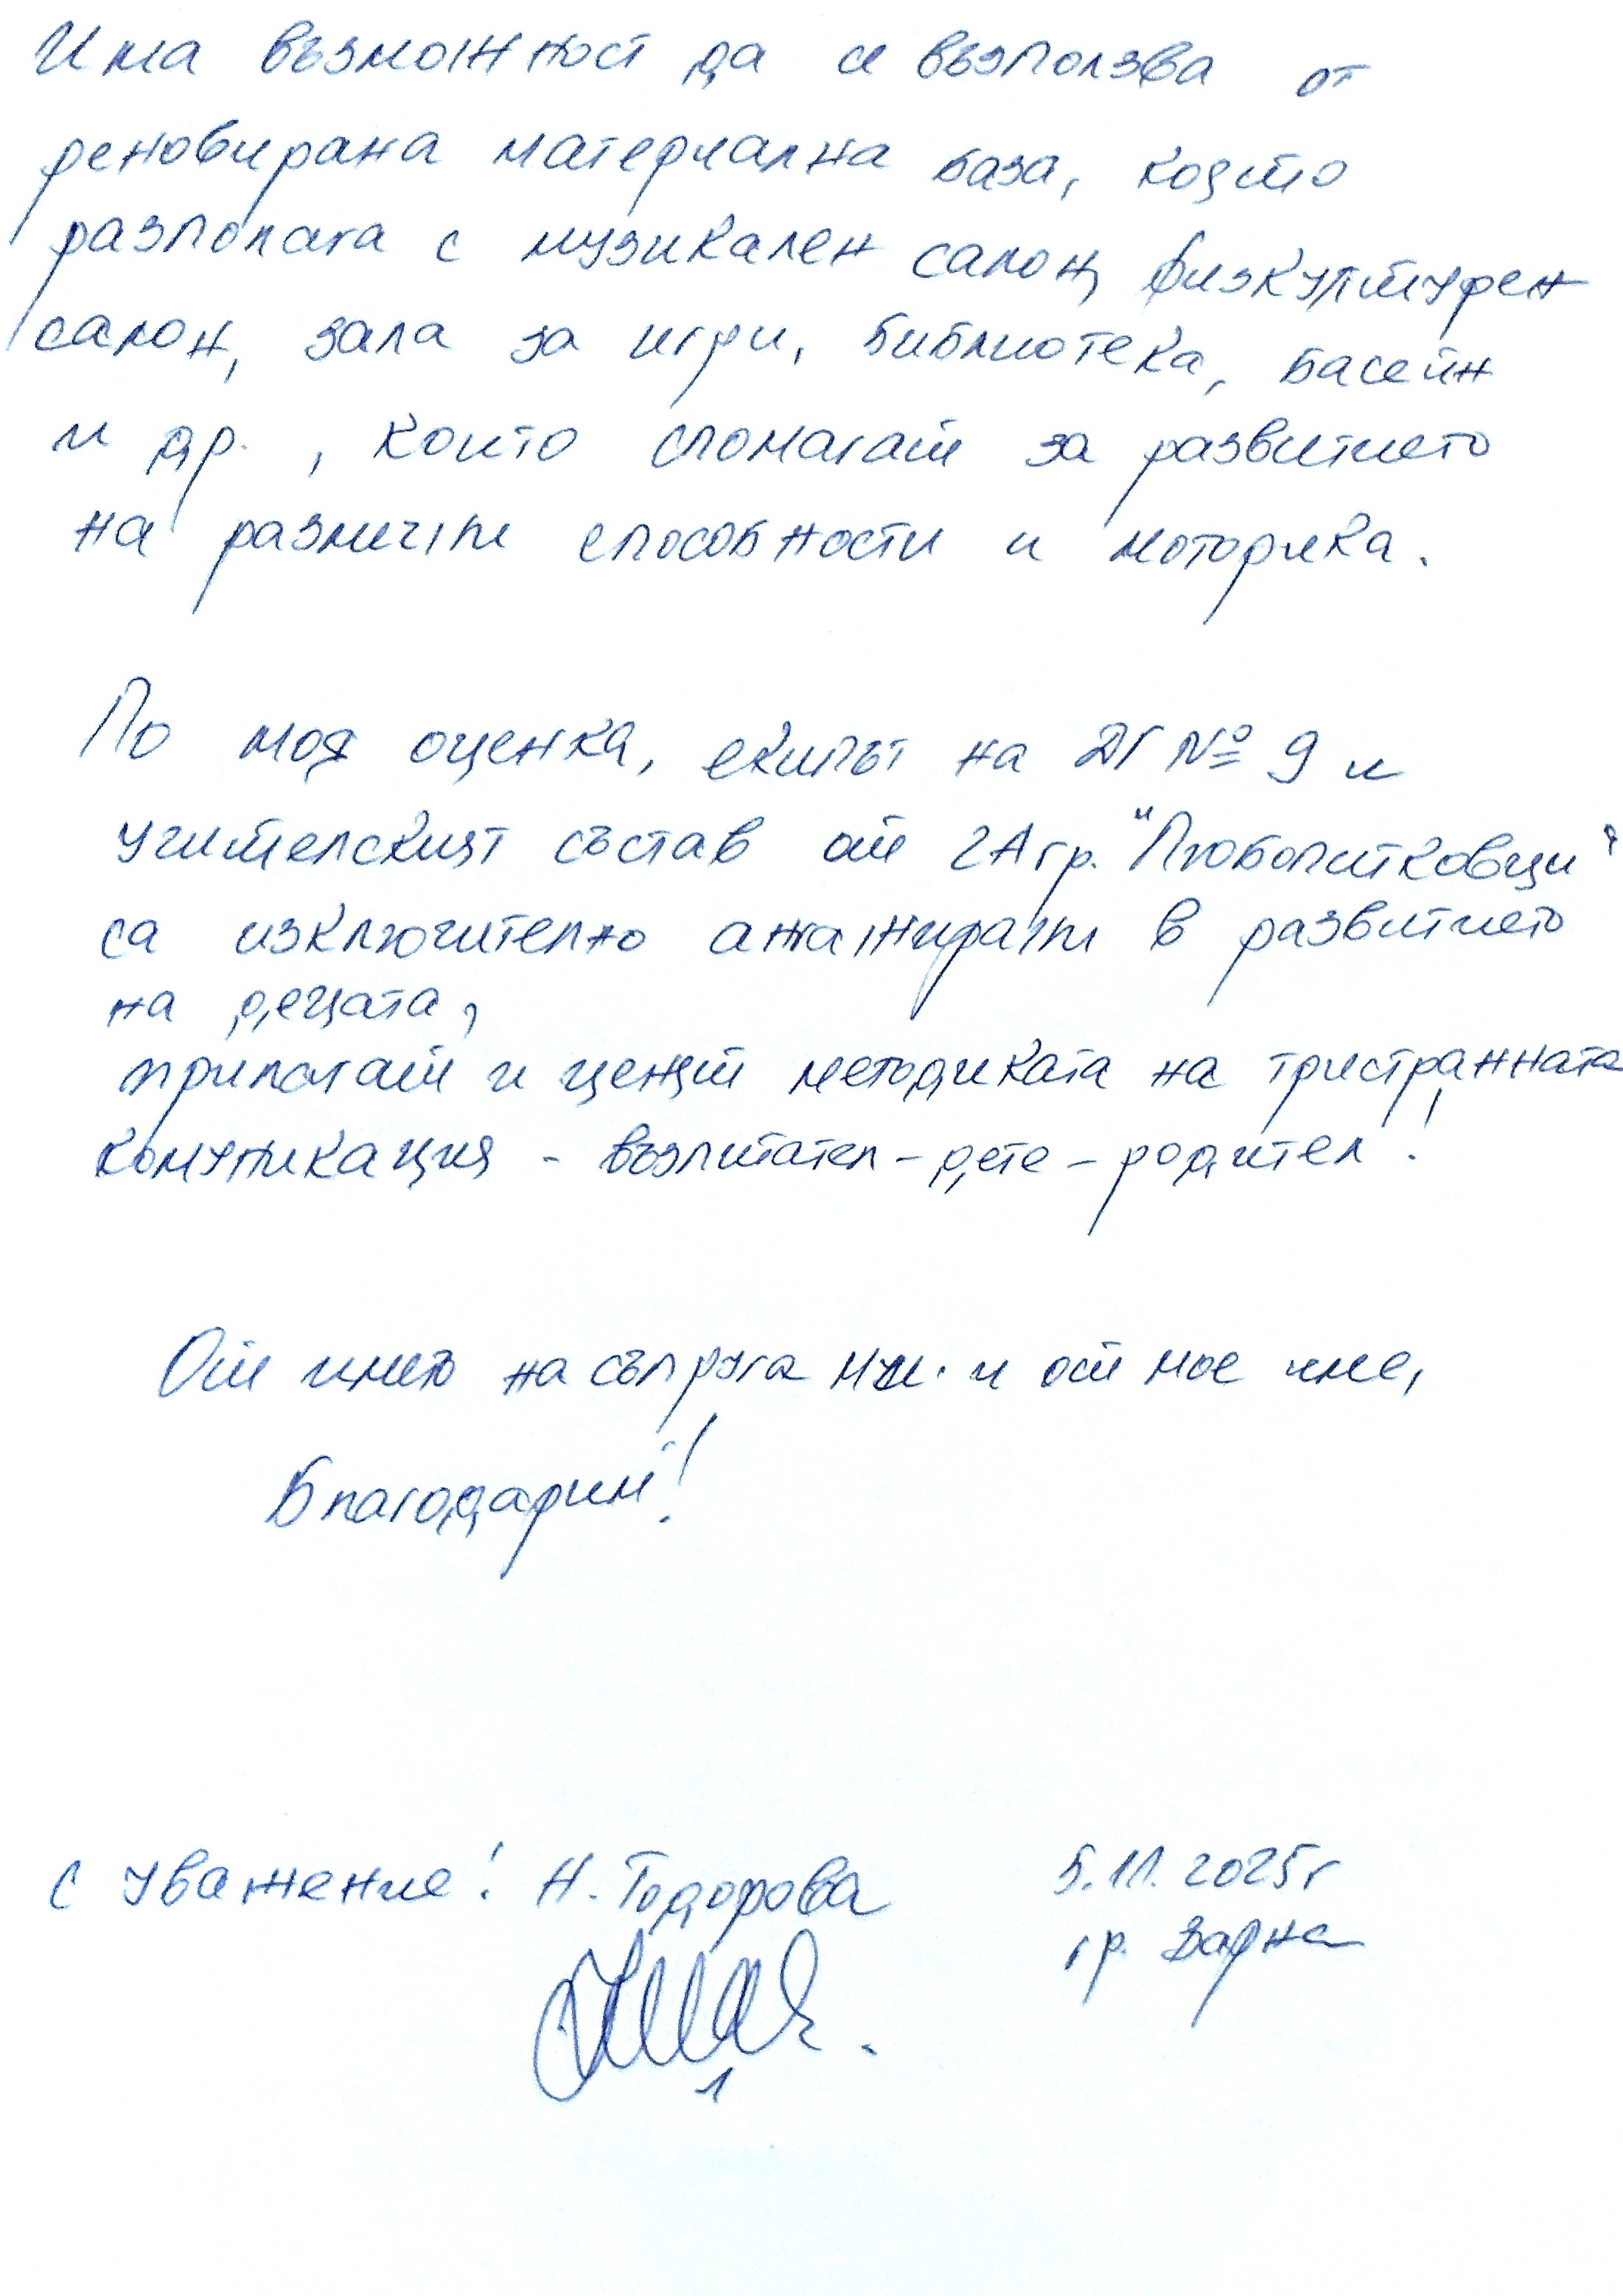 Има възможност да се възползва от
реновирана материална база, която
разполага с музикален салон, физкултурен
салон, зала за игри, библиотека, басейн
и др., които спомагат за развитието
на различни способности и моторика.
По моя оценка, екипът на ДГ № 9 и
учителският състав от 2А гр. "Любопитковци"
са изключително ангажирани в развитието
на децата,
прилагат и ценят методиката на тристранната
комуникация - възпитател - дете - родител!
От името на съпруга ми и от мое име,
Благодарим!
С уважение! Н. Тодорова
5.11.2025г
гр. Варна